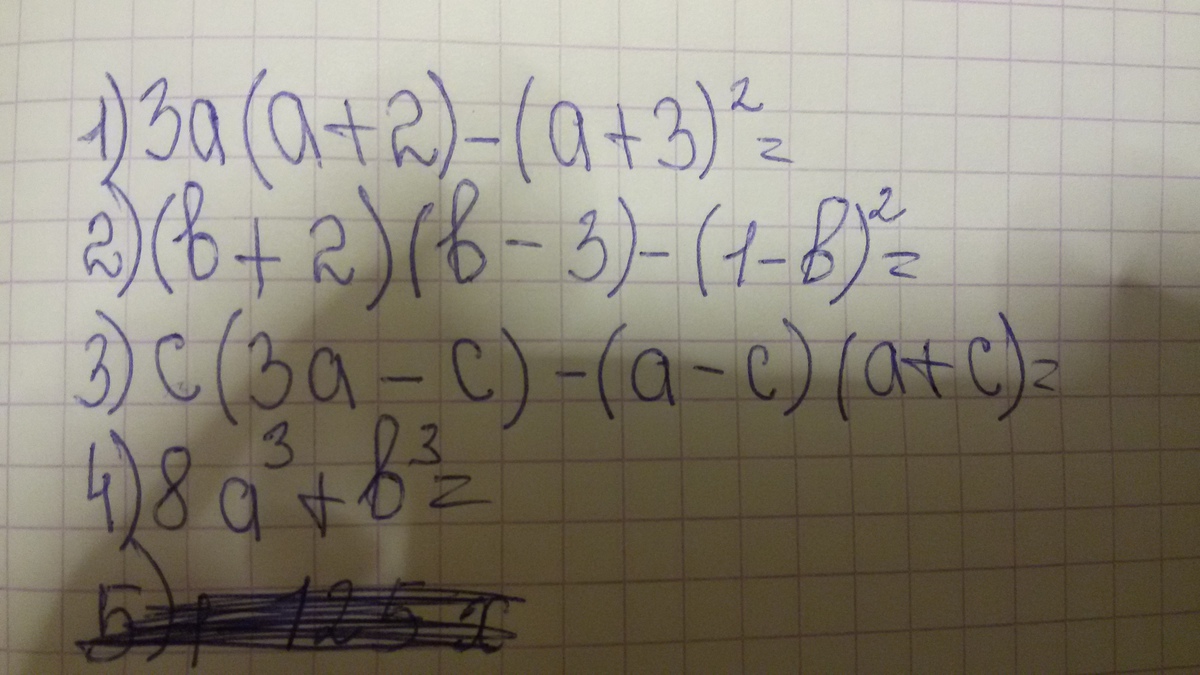 1) 3a(a+2)-(a+3)²=
2) (b+2)(b-3)-(1-b)²=
3) c(3a-c)-(a-c)(a+c)=
4) 8a³+b³=